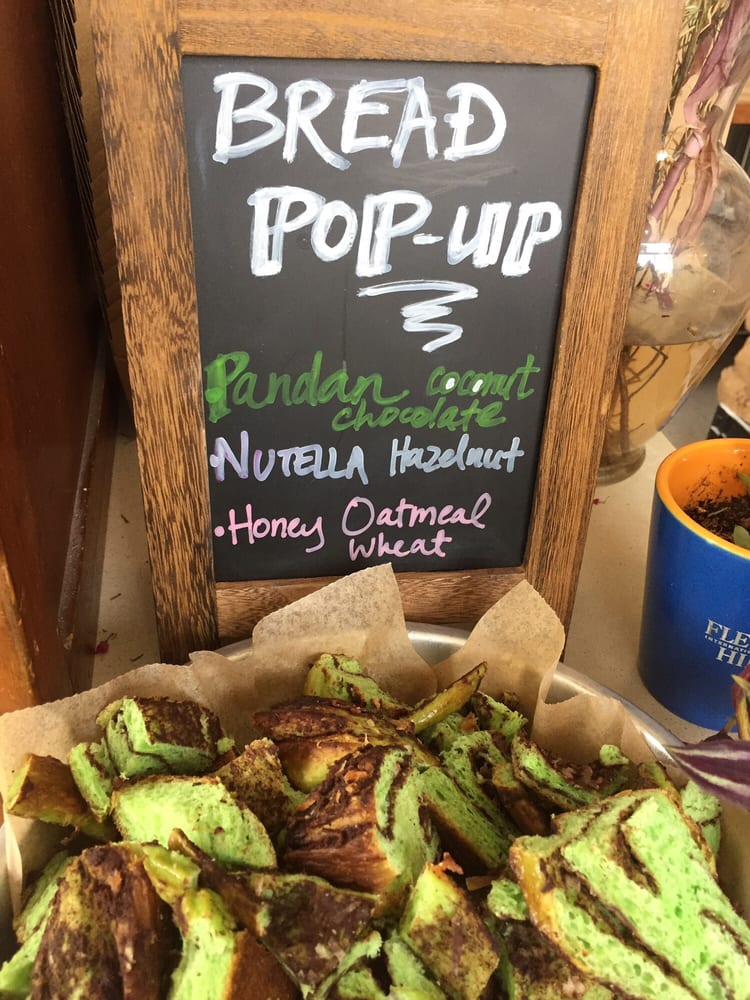 BREAD
POP-UP
• Pandan coconut
chocolate
• NUTELLA Hazelnut
• Honey Oatmeal
wheat